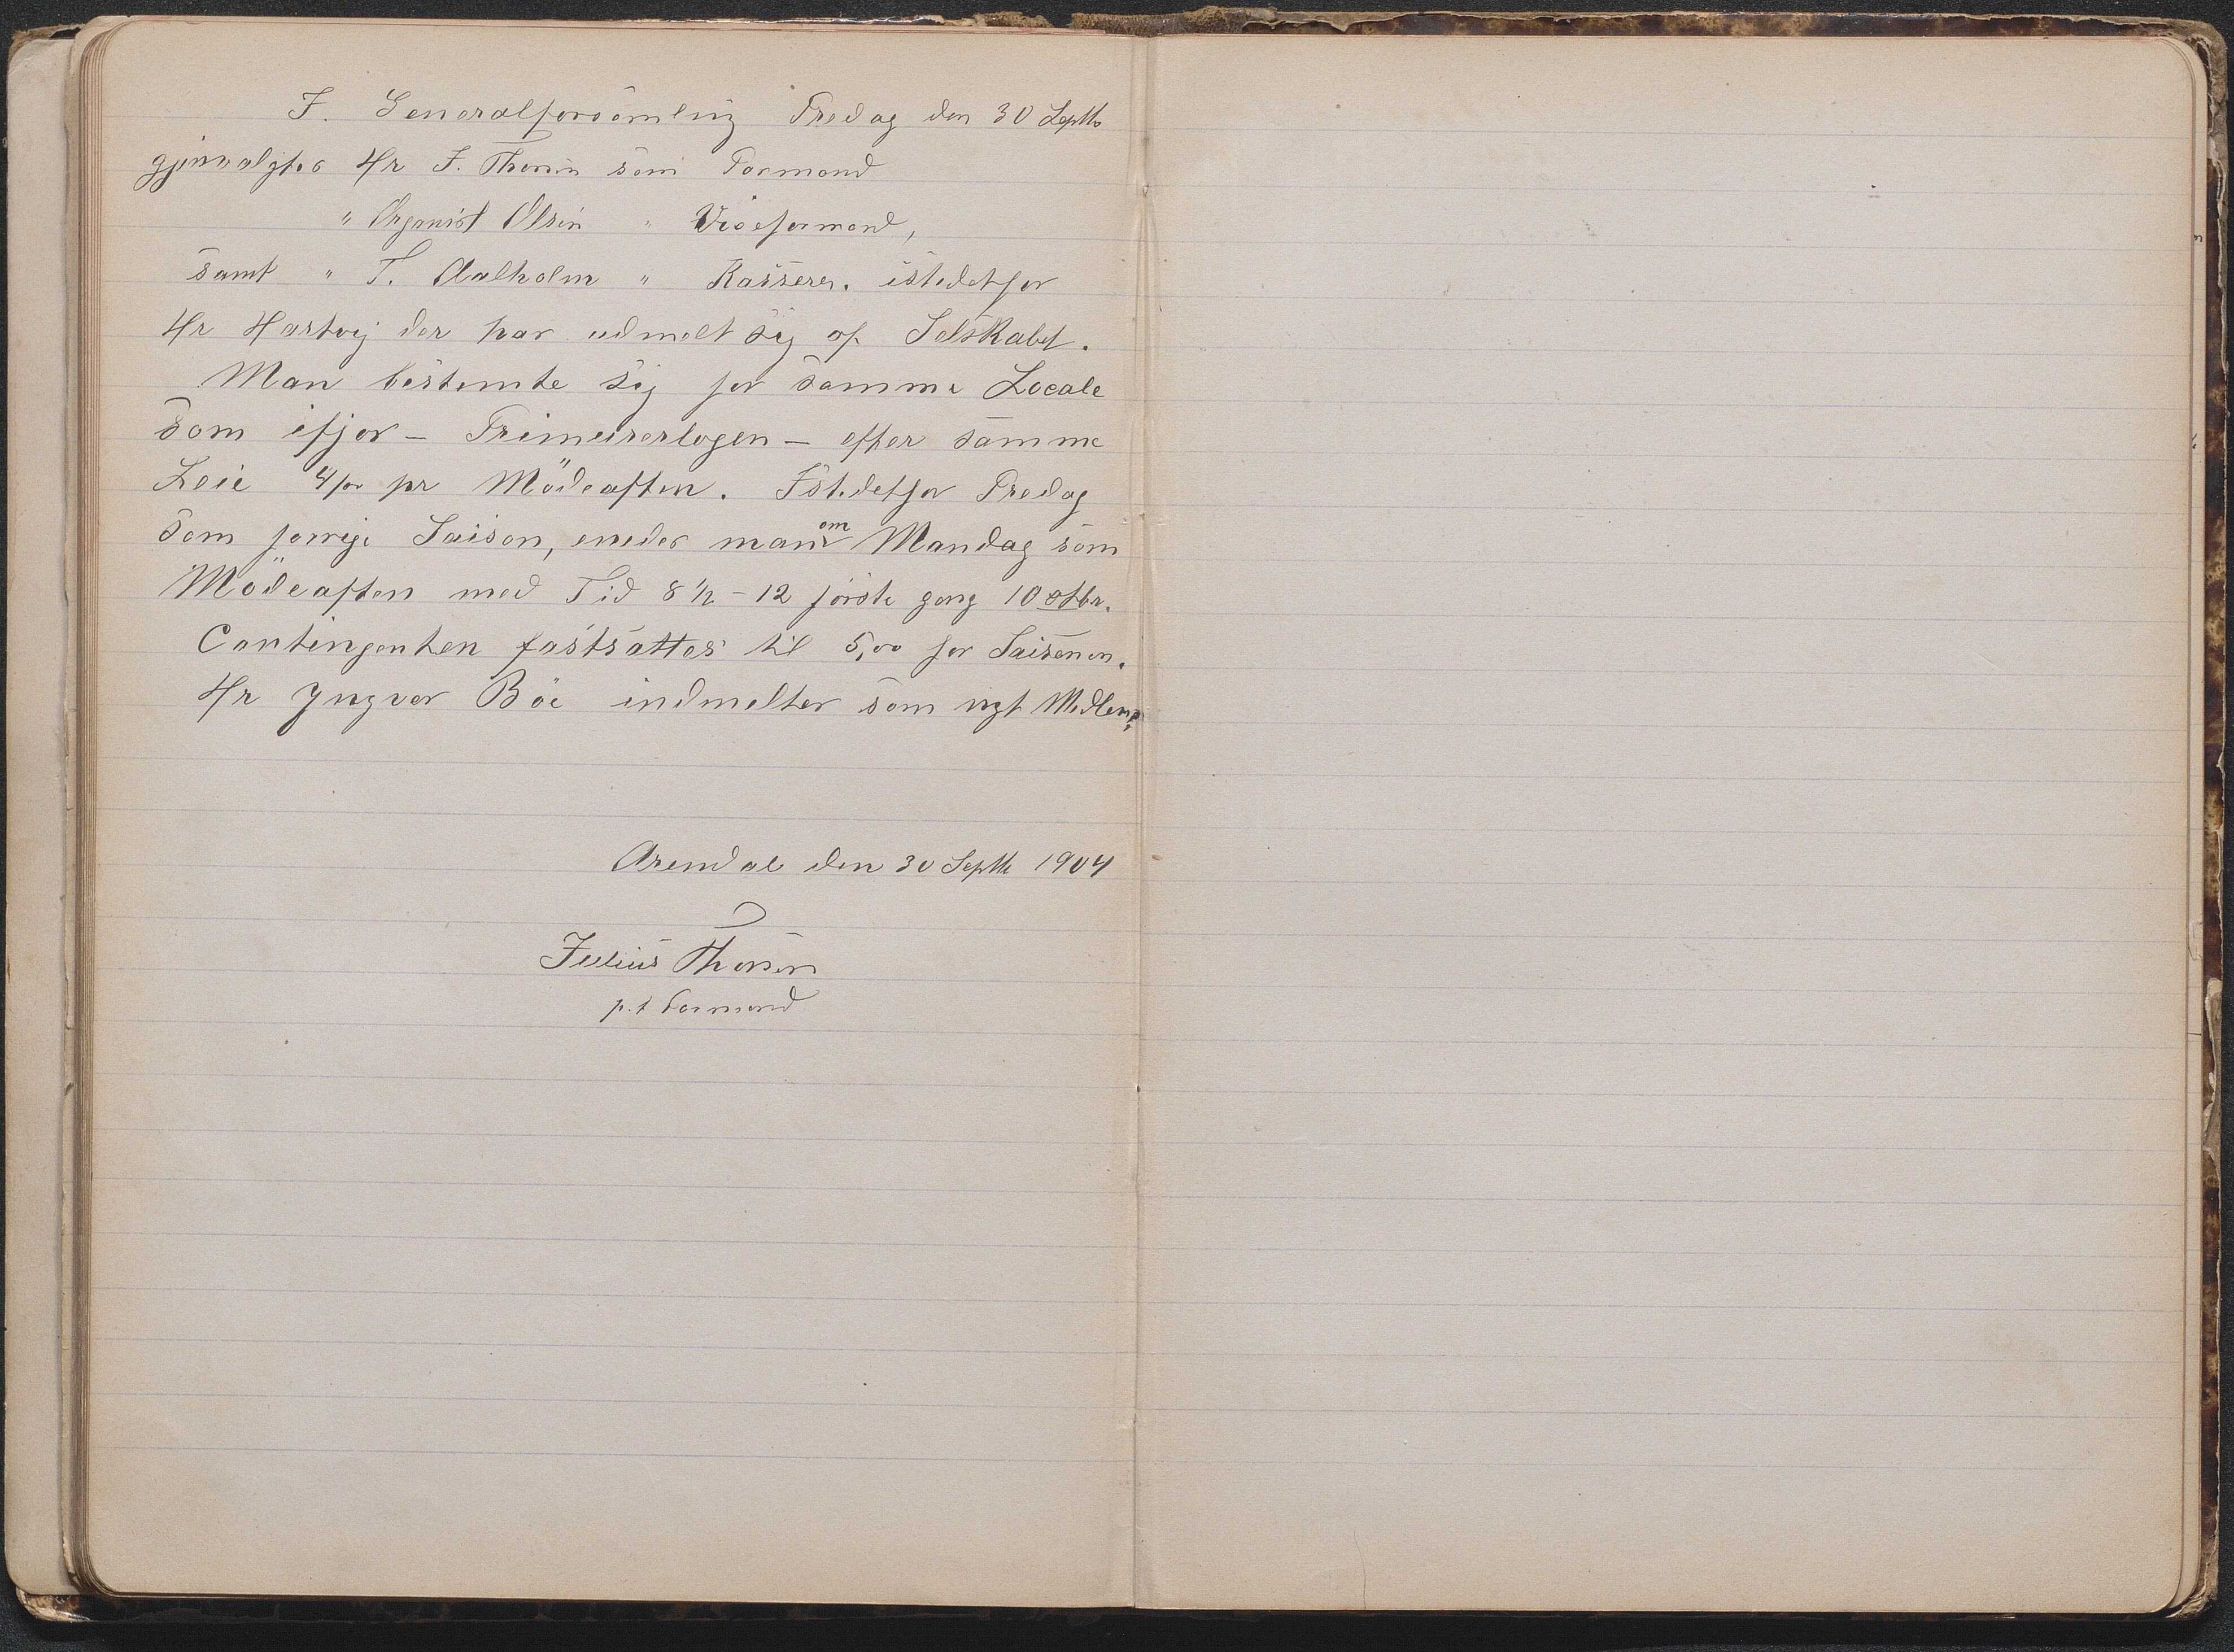 I. Generalforsamling Fredag den 30 Septb
gjenvalgtes Hr J. Thorsen som Formand
" Organist Olsen " Viceformand,
samt " T. Aalholm " Kasserer. istedetfor
Hr Hartvig der har udmelt sig af Selskabet.
Man bestemte sig for samme Locale
som ifjor - Frimurerlogen - efter samme
Leie 4,00 pr Mödeaften. Istedetfor Fredag
som forrige Saison, enedes man om Mandag som
Mödeaften med Tid 8 1/2 - 12 förste gang 10 Otbr.
Contingenten fastsattes til 5,00 for Saisonen.
Hr Yngvar Böe indmeltes som nyt Medlem.
Arendal den 30 Septb 1904
Julius Thorsen
p.t Formand